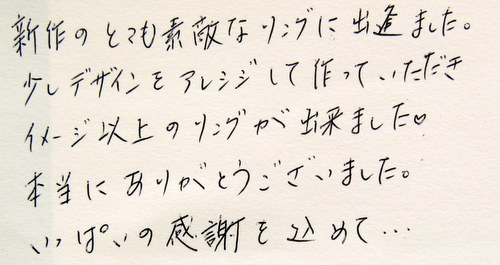 新作のとても素敵なリングに出逢ました。
少しデザインをアレンジして作っていただき
イメージ以上のリングが出来ました♡
本当にありがとうございました。
いっぱいの感謝を込めて…